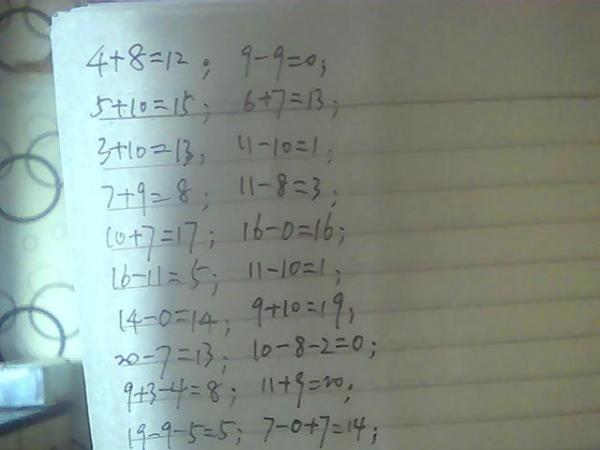 4+8=12; 9-9=0;
5+10=15; 6+7=13;
3+10=13; 11-10=1;
7+9=8; 11-8=3;
10+7=17; 16-0=16;
16-11=5; 11-10=1;
14-0=14; 9+10=19;
20-7=13; 10-8-2=0;
9+3-4=8; 11+9=20;
19-9-5=5; 7-0+7=14;